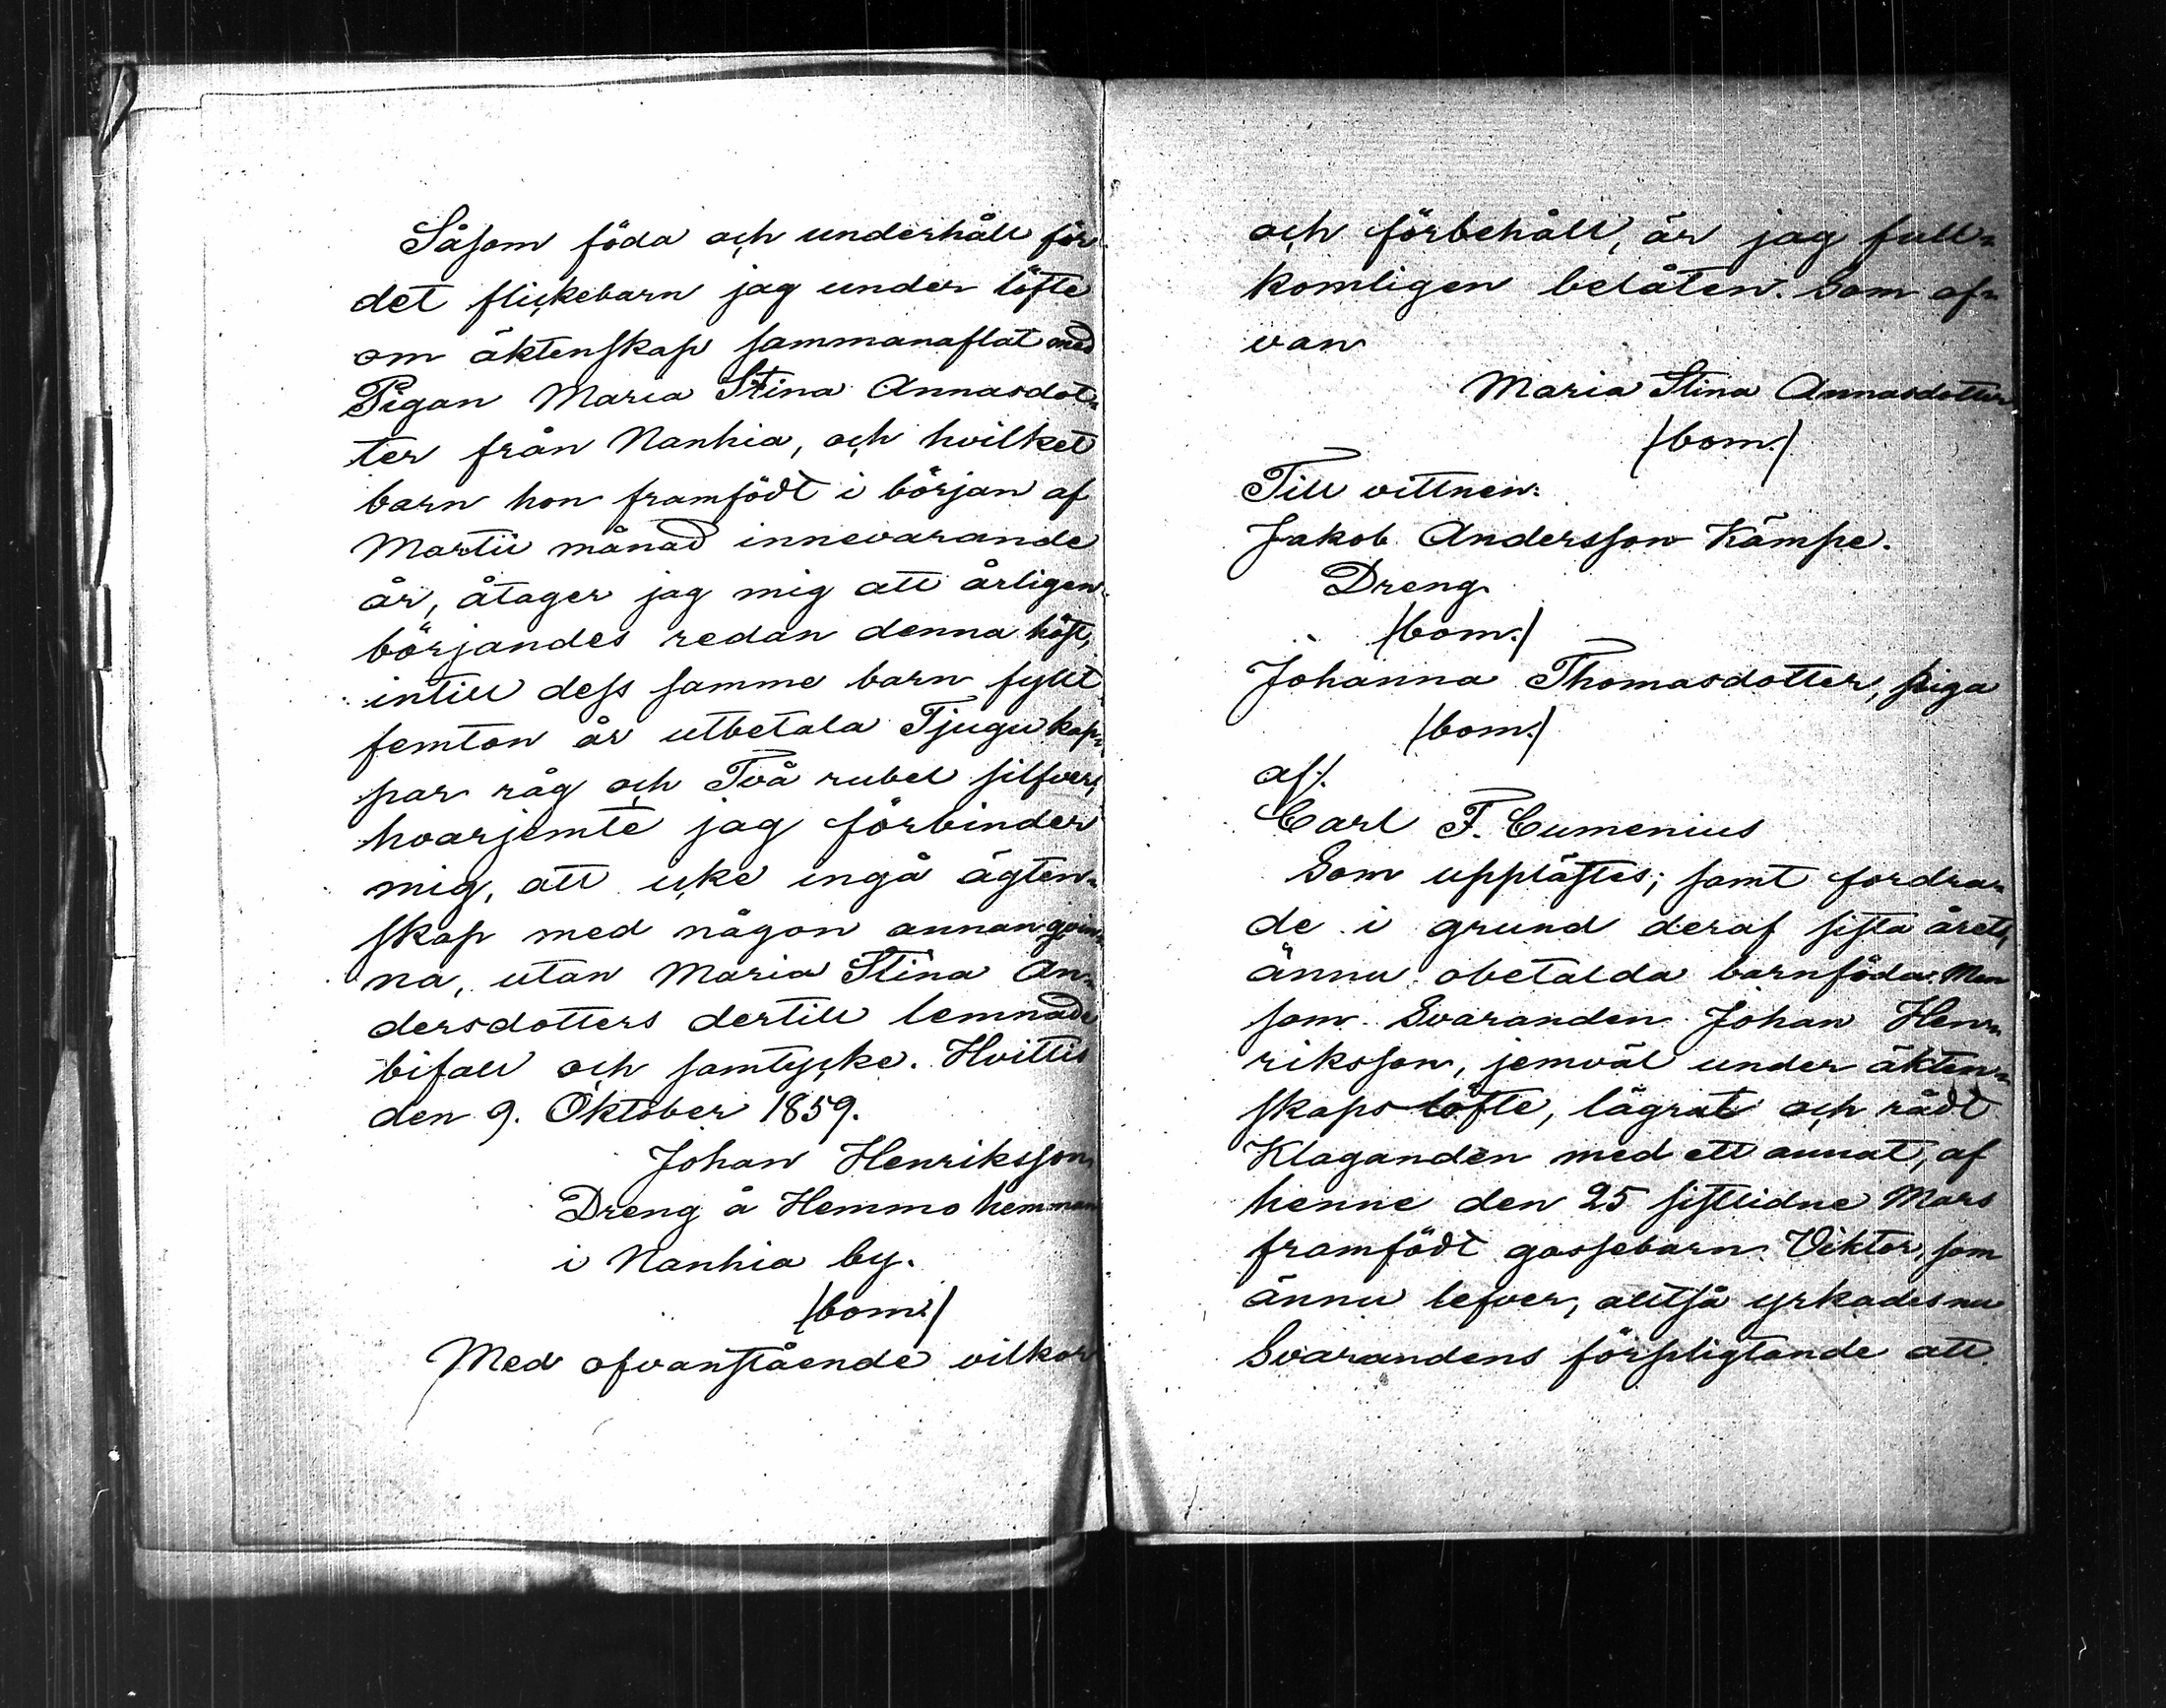 Såsom föda och underhåll för
det flickebarn jag under löfte
om äktenskap sammanaflat med
Pigan Maria Stina Annasdot=
ter från Nanhia, och hvilket
barn hon framfödt i början af
Martii månad innevarande
år, åtager jag mig att årligen,
börjandes redan denna höst,
intill dess samme barn fyllt
femton år utbetala Tjugu kap=
par råg och Två rubel silfver,
hvarjemte jag förbinder
mig, att icke ingå ägten=
skap med någon annan qvin=
na, utan Maria Stina An=
dersdotters dertill lemnade
bifall och samtycke. Hvittis
den 9. Oktober 1859.
Johan Henriksson
Dreng å Hemmo hemman
i Nanhia by.
/bom:/
Med ofvanstående vilkor
och förbehåll, är jag full=
komligen belåten. Som of=
van
Maria Stina Annasdotter
/bom:/
Till vittnen:
Jakob Andersson Kämpe.
Dreng
/bom:/
Johanna Thomasdotter, piga
/bom:/
af:
Carl F. Cumenius
Som upplästes; samt fordra=
de i grund deraf sista årets,
ännu obetalda barnföda. Men
som Svaranden Johan Hen=
riksson, jemväl under äkten=
skaps löfte, lägrat och rådt
Klaganden med ett annat, af
henne den 25 sistlidne Mars
framfödt gossebarn Viktor, som
ännu lefver, alltså yrkades nu
Svarandens förpligtande att